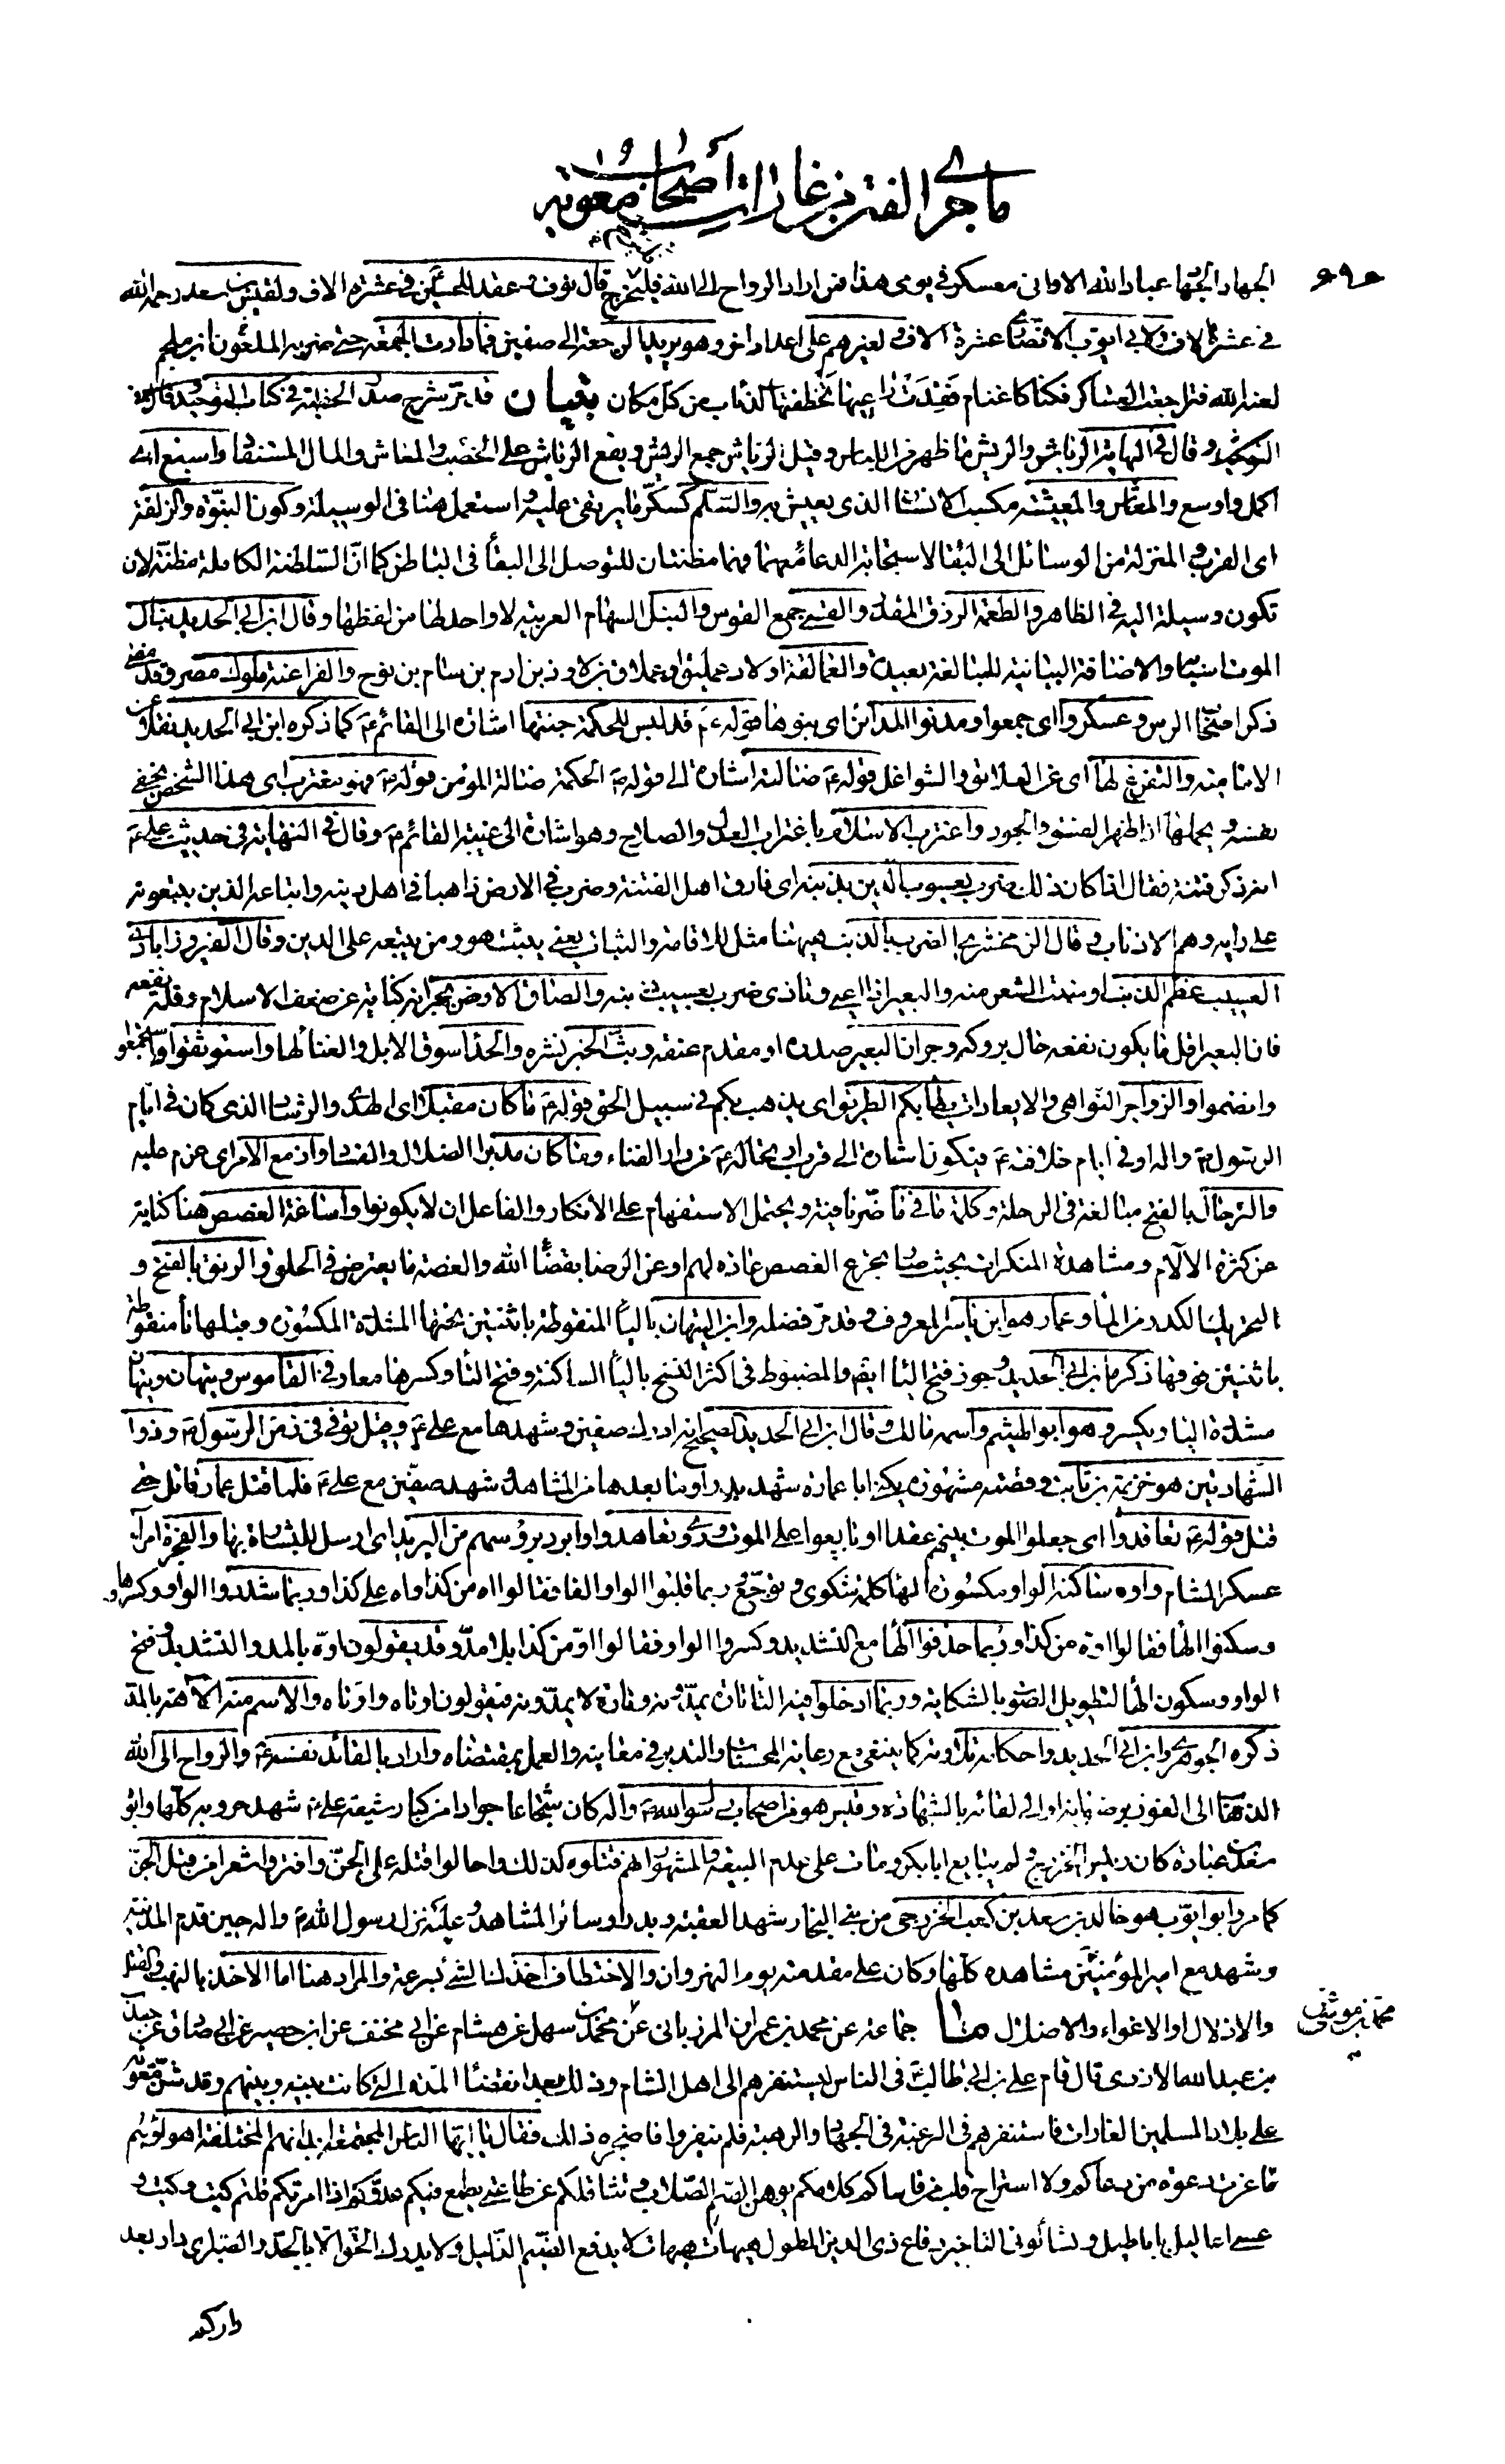 ما جرى من الفتن من غارات أصحاب معوية
الجهاد الجهاد عباد الله الا واني معسكر في يومي هذا فمن اراد الرواح الى الله فليخرج قال نوف وعقد للحسين في عشرة الاف ولقيس بن سعد رحمه الله
في عشرة الاف ولابي ايوب الانصاري عشرة الاف ولغيرهم على اعداد اخر وهو يريد الرجعة الى صفين فما دارت الجمعة حتى ضربه الملعون ابن ملجم
لعنه الله فتراجعت العساكر فكنا كاغنام فقدت راعيها تخطفتها الذئاب من كل مكان بيان قد مر شرح صدر الخطبة في كتاب التوحيد
وقال في النهاية الرياش والريش ما ظهر من اللباس وقيل الرياش جمع الريش ويقع الرياش على الخصب والمعاش والمال المستفاد واسبغ اي
اكمل واوسع والمعاش والمعيشة مكسب الانسان الذي يعيش به والسلم كسكر ما يرتقى عليه واستعمل هنا في الوسيلة وكون النبوة والزلفة
اي القرب والمنزلة من الوسائل الى البقاء لاستجابة الدعاء معهما فهما مظنتان للتوصل الى البقاء في الباطن كما ان السلطنة الكاملة مظنة لان
تكون وسيلة اليه في الظاهر والطعمة الرزق المقدر والقسي جمع القوس والنبل السهام العربية لا واحد لها من لفظها وقال ابن ابي الحديد نبال
الموت اسبابه والاضافة البيانية للمبالغة بعيدة والعمالقة اولاد عمليق او عملاق بن لاوذ بن ارم بن سام بن نوح والفراعنة ملوك مصر وقد مضى
ذكر اصحاب الرس وعسكروا اي جمعوا ومدنوا المدائن اي بنوها قوله ع قد لبس للحكمة جنتها اشارة الى القائم ع كما ذكره ابن ابي الحديد نقلا عن
الامامية والتفرغ لها اي عن العلائق والشواغل قوله ع ضالته اشارة الى قوله ص الحكمة ضالة المؤمن قوله ع فهو مغترب اي هذا الشخص يخفي
نفسه ويحملها اذا ظهر الفسق والجور واغترب الاسلام باغتراب العدل والصلاح وهو اشارة الى غيبة القائم ع وقال في النهاية في حديث علي ع
انه ذكر فتنة فقال اذا كان ذلك ضرب يعسوب الدين بذنبه اي فارق اهل الفتنة وضرب في الارض ذاهبا في اهل دينه واتباعه الذين يتبعونه
على رايه وهم الاذناب وقال الزمخشري الضرب بالذنب هيهنا مثل للاقامة والثبات يعني يثبت هو ومن يتبعه على الدين وقال الفيروزابادي
العسيب عظم الذنب او منبت الشعر منه والبعير اذا اعيى وتاذى ضرب بعسيب ذنبه والصاق الارض بجرانه كناية عن ضعف الاسلام وقلة نفعه
فان البعير اقل ما يكون نفعه حال بروكه وجران البعير صدره او مقدم عنقه وبث الخبر نشره والحداء سوق الابل والغناء لها واستوثقوا استجمعوا
وانضموا والزواجر النواهي والايعادات يطأ بكم الطريق اي يذهب بكم في سبيل الحق قوله ع ما كان مقبلا اي الهدى والرشاد الذي كان في ايام
الرسول ص واله او في ايام خلافته ع فيكون اشارة الى قرب ارتحاله ع من دار الفناء وما كان مدبرا الضلال والفساد وازمع الامر اي عزم عليه
والترحال بالفتح مبالغة في الرحلة وكلمة ما في ما ضر نافية ويحتمل الاستفهام على الانكار والفاعل ان لا يكونوا واساغة الغصص هنا كناية
عن كثرة الآلام ومشاهدة المنكرات بحيث صار تجرع الغصص عادة لهم او عن الرضا بقضاء الله والغصة ما يعترض في الحلق والرنق بالفتح و
التحريك الكدر من الماء وعمار هو ابن ياسر المعروف وقد مر فضله وابن التيهان بالياء المنقوطة باثنتين تحتها المشددة المكسورة وقبلها تاء منقوطة
باثنتين فوقها ذكره ابن ابي الحديد وجوز فتح الياء ايضا والمضبوط في اكثر النسخ بالياء الساكنة وفتح التاء وكسرها معا وفي القاموس وتيهان وتيهان
مشددة الياء ويكسر وهو ابو الهيثم واسمه مالك وقال ابن ابي الحديد الصحيح انه ادرك صفين وشهدها مع علي ع وقيل توفي في زمن الرسول ص وذو
الشهادتين هو خزيمة بن ثابت وقصته مشهورة يكنى ابا عمارة شهد بدرا وما بعدها من المشاهد شهد صفين مع علي ع فلما قتل عمار قاتل حتى
قتل قوله ع تعاقدوا اي جعلوا الموت بينهم عقدا او تايعوا على الموت وروي وتعاهدوا وابرد برؤسهم من البريد اي ارسل للبشارة بها والفجرة امراء
عسكر الشام واوه ساكنة الواو مكسورة الهاء كلمة شكوى وتوجع وربما قلبوا الواو الفا فقالوا اه من كذا واه على كذا وربما شددوا الواو وكسروها
وسكنوا الهاء فقالوا اوه من كذا وربما حذفوا الهاء مع التشديد وكسروا الواو فقالوا او من كذا بلا مد وقد يقولون اوه بالمد والتشديد وفتح
الواو وسكون الهاء لتطويل الصوت بالشكاية وربما ادخلوا فيه التاء تارة يمدونه وتارة لا يمدونه فيقولون اوتاه واوتاه والاسم منه الآهة بالمد
ذكره الجوهري وابن ابي الحديد واحكامه تلاوته كما ينبغي مع رعاية المحسنات والتدبر في معانيه والعمل بمقتضاه واراد بالقائد نفسه ع والرواح الى الله
الذهاب الى الفوز برضوانه او الى لقائه بالشهادة وقيس هو من اصحاب رسول الله ص واله كان شجاعا جوادا من كبار شيعة علي ع شهد حروبه كلها وابوه
سعد بن عبادة كان رئيس الخزرج ولم يبايع ابا بكر ومات على عدم البيعة والمشهور انهم قتلوه كذلك واحالوا قتله على الجن وافتروا شعرا من قبل الجن
كما مر وابو ايوب هو خالد بن سعد بن كعب الخزرجي من بني النجار شهد العقبة وبدرا وسائر المشاهد وعليه نزل رسول الله ص واله حين قدم المدينة
وشهد مع امير المؤمنين مشاهده كلها وكان على مقدمته يوم النهروان والاختطاف اخذك الشئ بسرعة والمراد هنا اما الاخذ بالنهب والقتل
والاذلال او الاغواء والاضلال جماعة عن محمد بن عمران المرزباني عن محمد بن سهل عن هشام عن ابي مخنف عن ابن حصيرة عن ابي صادق عن جندب
محمد بن موسى
بن عبد الله الازدي قال قام علي بن ابي طالب ع في الناس ليستنفرهم الى اهل الشام وذلك بعد انقضاء المدة التي كانت بينه وبينهم وقد شن معوية
على بلاد المسلمين الغارات فاستنفرهم في الرغبة في الجهاد والرهبة فلم ينفروا فاضجره ذلك فقال يا ايها الناس المجتمعة ابدانهم المختلفة اهوائهم
ما عزت دعوة من دعاكم ولا استراح قلب من قاساكم كلامكم يوهن الصم الصلاب وتثاقلكم عن طاعتي يطمع فيكم عدوكم اذا امرتكم قلتم كيت وكيت و
عسى اعاليل باباطيل وتسالوني التاخير دفاع ذي الدين المطول هيهات هيهات لا يدفع الضيم الذليل ولا يدرك الحق الا بالجد والصبر اي دار بعد
داركم